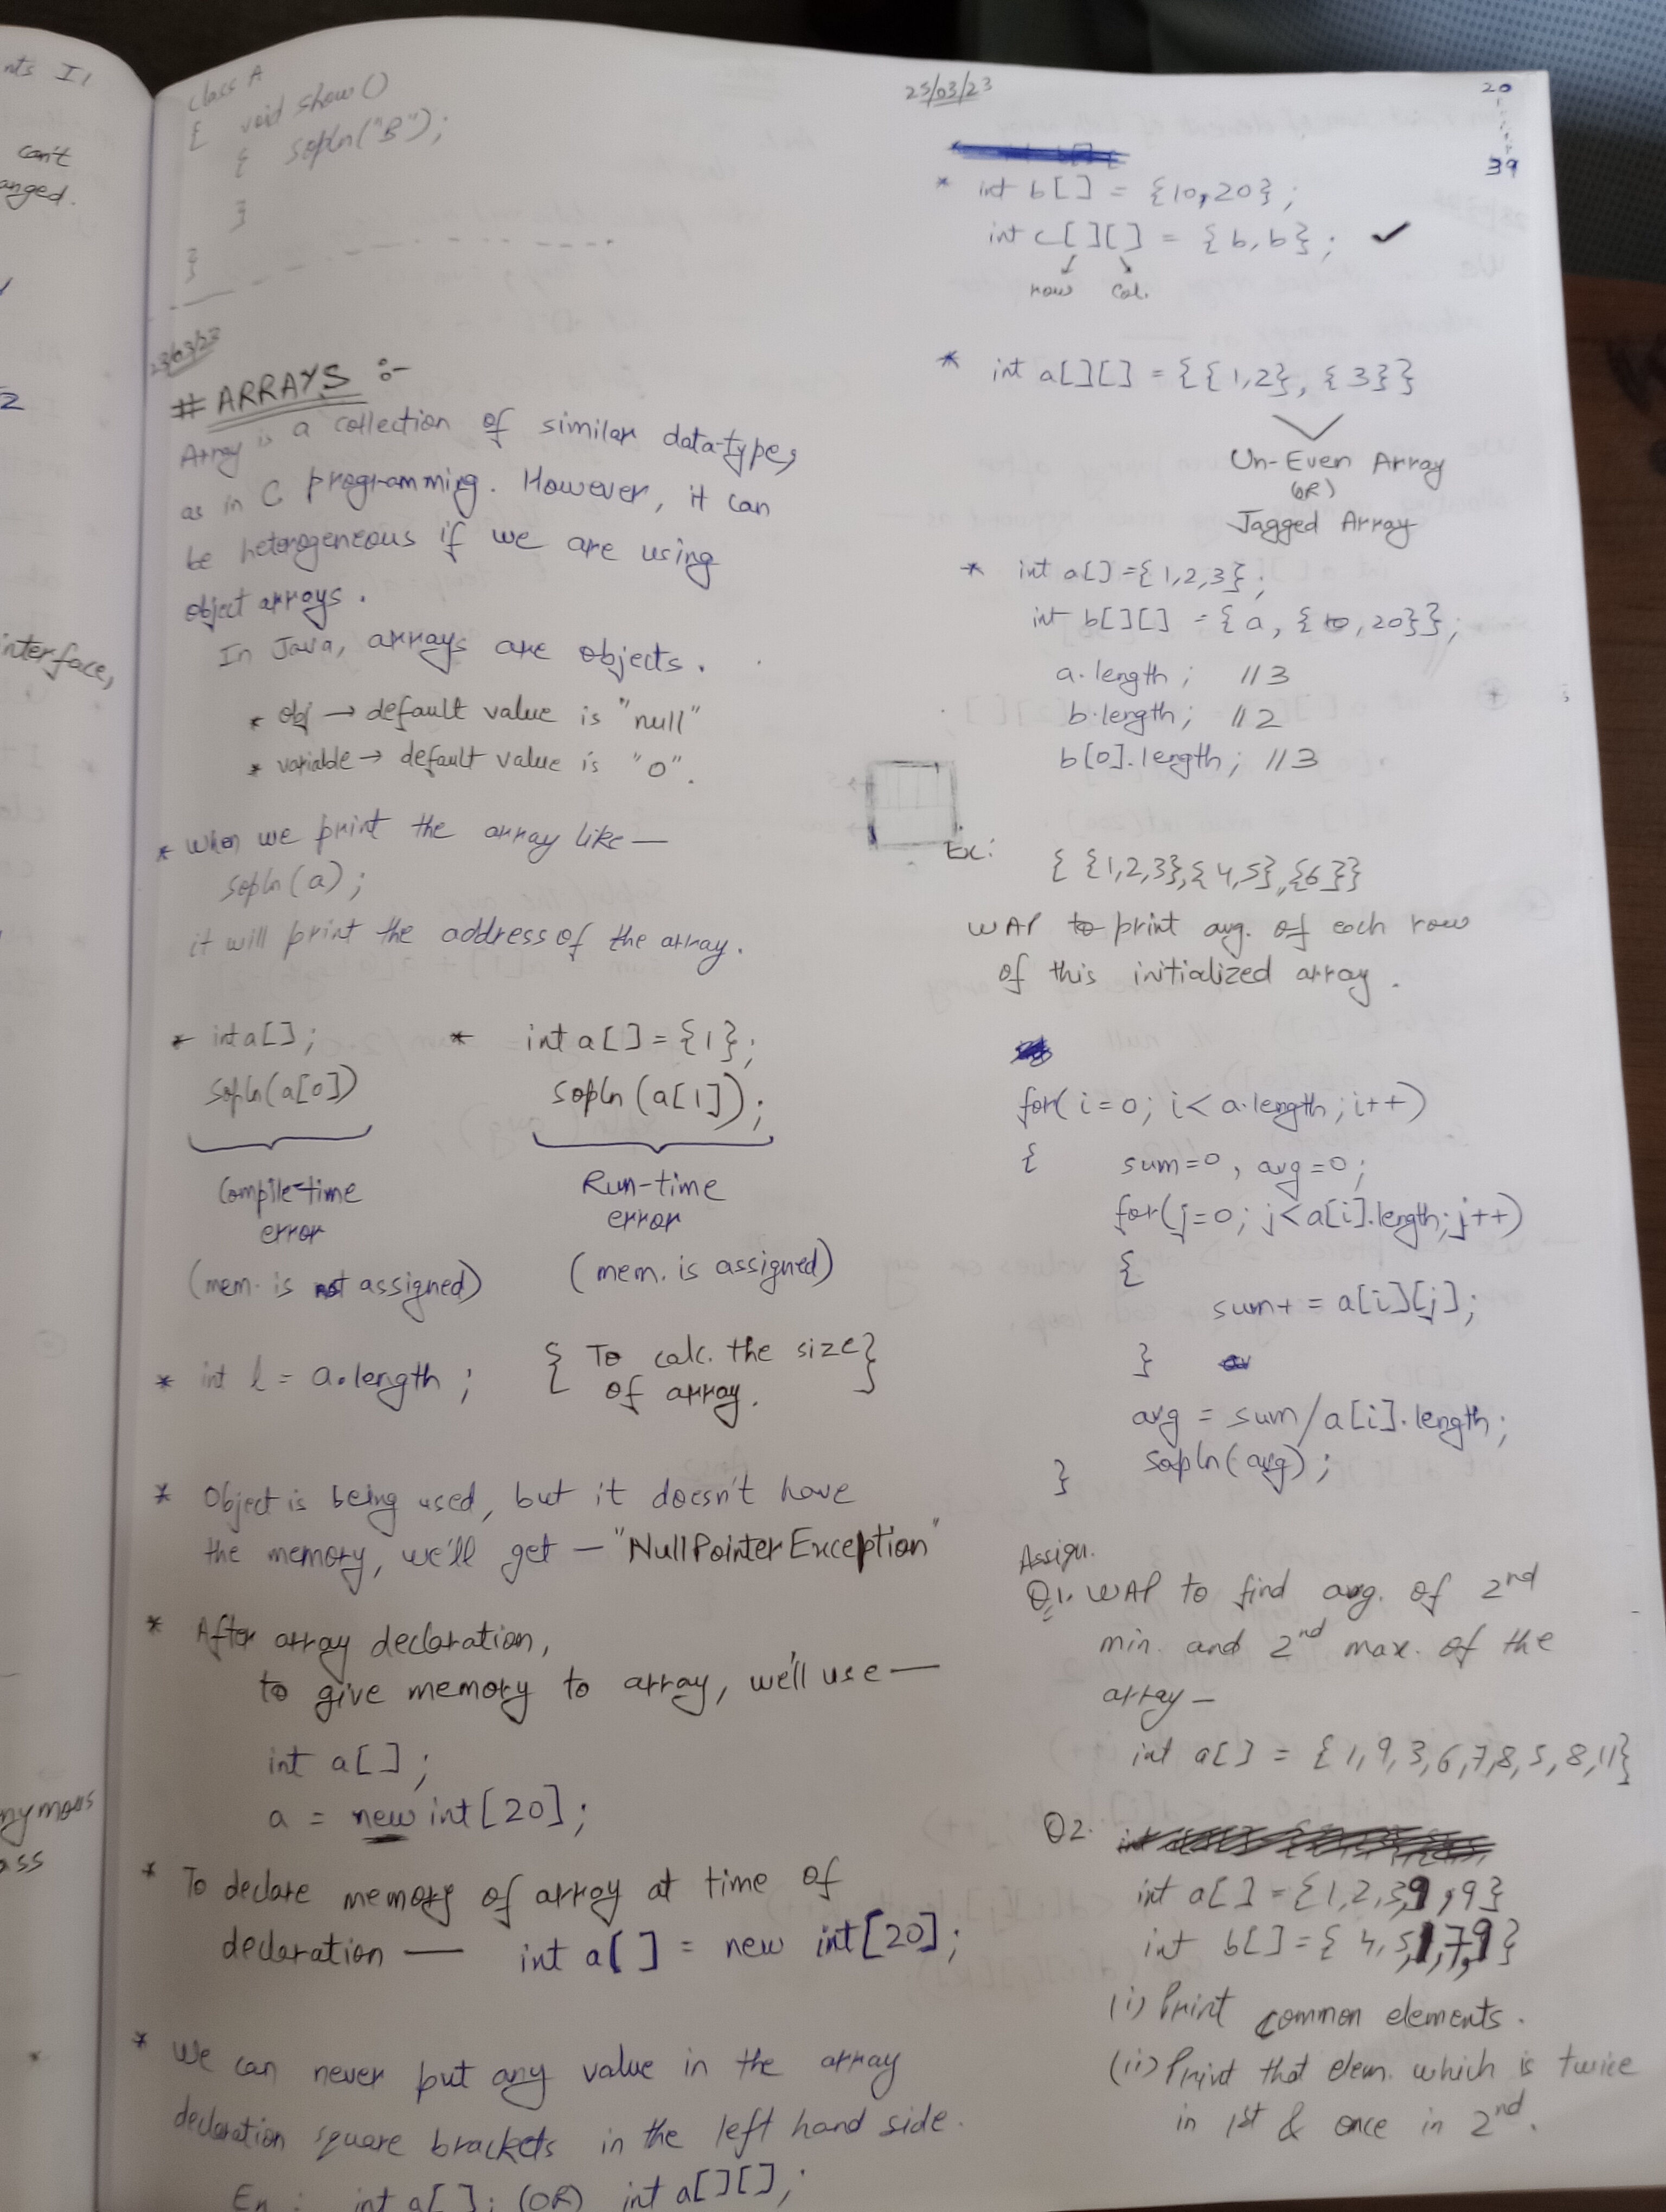 nts I1
can't
anged.
2
interface,
nymous
ass
class A
{ void show()
{ sopln("B");
}
}
23/03/23
# ARRAYS :-
Array is a collection of similar data-type,
as in C programming. However, it can
be heterogeneous if we are using
object arrays.
In Java, arrays are objects.
* obj → default value is "null"
* variable → default value is "0".
* When we print the array like —
sopln(a);
it will print the address of the array.
* int a[];
sopln(a[0])
Compile-time
error
(mem. is not assigned)
* int a[] = {1};
sopln(a[1]);
Run-time
error
(mem. is assigned)
* int l = a.length; { To calc. the size
of array. }
* Object is being used, but it doesn't have
the memory, we'll get — "NullPointerException"
* After array declaration,
to give memory to array, we'll use —
int a[];
a = new int[20];
* To declare memory of array at time of
declaration — int a[] = new int[20];
* We can never put any value in the array
declaration square brackets in the left hand side.
En : int a[]; (OR) int a[][];
25/03/23
20
39
* int b[] = {10,20};
int c[][] = {b,b}; ✓
row col.
* int a[][] = {{1,2}, {3}}
Un-Even Array
(OR)
Jagged Array
* int a[] = {1,2,3};
int b[][] = {a, {10,20}};
a.length; //3
b.length; //2
b[0].length; //3
Ex: { {1,2,3},{4,5},{6}}
WAP to print avg. of each row
of this initialized array.
for( i=0; i<a.length; i++)
{ sum=0, avg=0;
for(j=0; j<a[i].length; j++)
{
sum+ = a[i][j];
}
avg = sum/a[i].length;
sopln(avg);
}
Assign.
Q1. WAP to find avg. of 2nd
min. and 2nd max. of the
array —
int a[] = {1,9,3,6,7,8,5,8,11}
Q2.
int a[] = {1,2,3,9,9}
int b[] = {4,5,1,7,9}
(i) Print common elements.
(ii) Print that elem. which is twice
in 1st & once in 2nd.